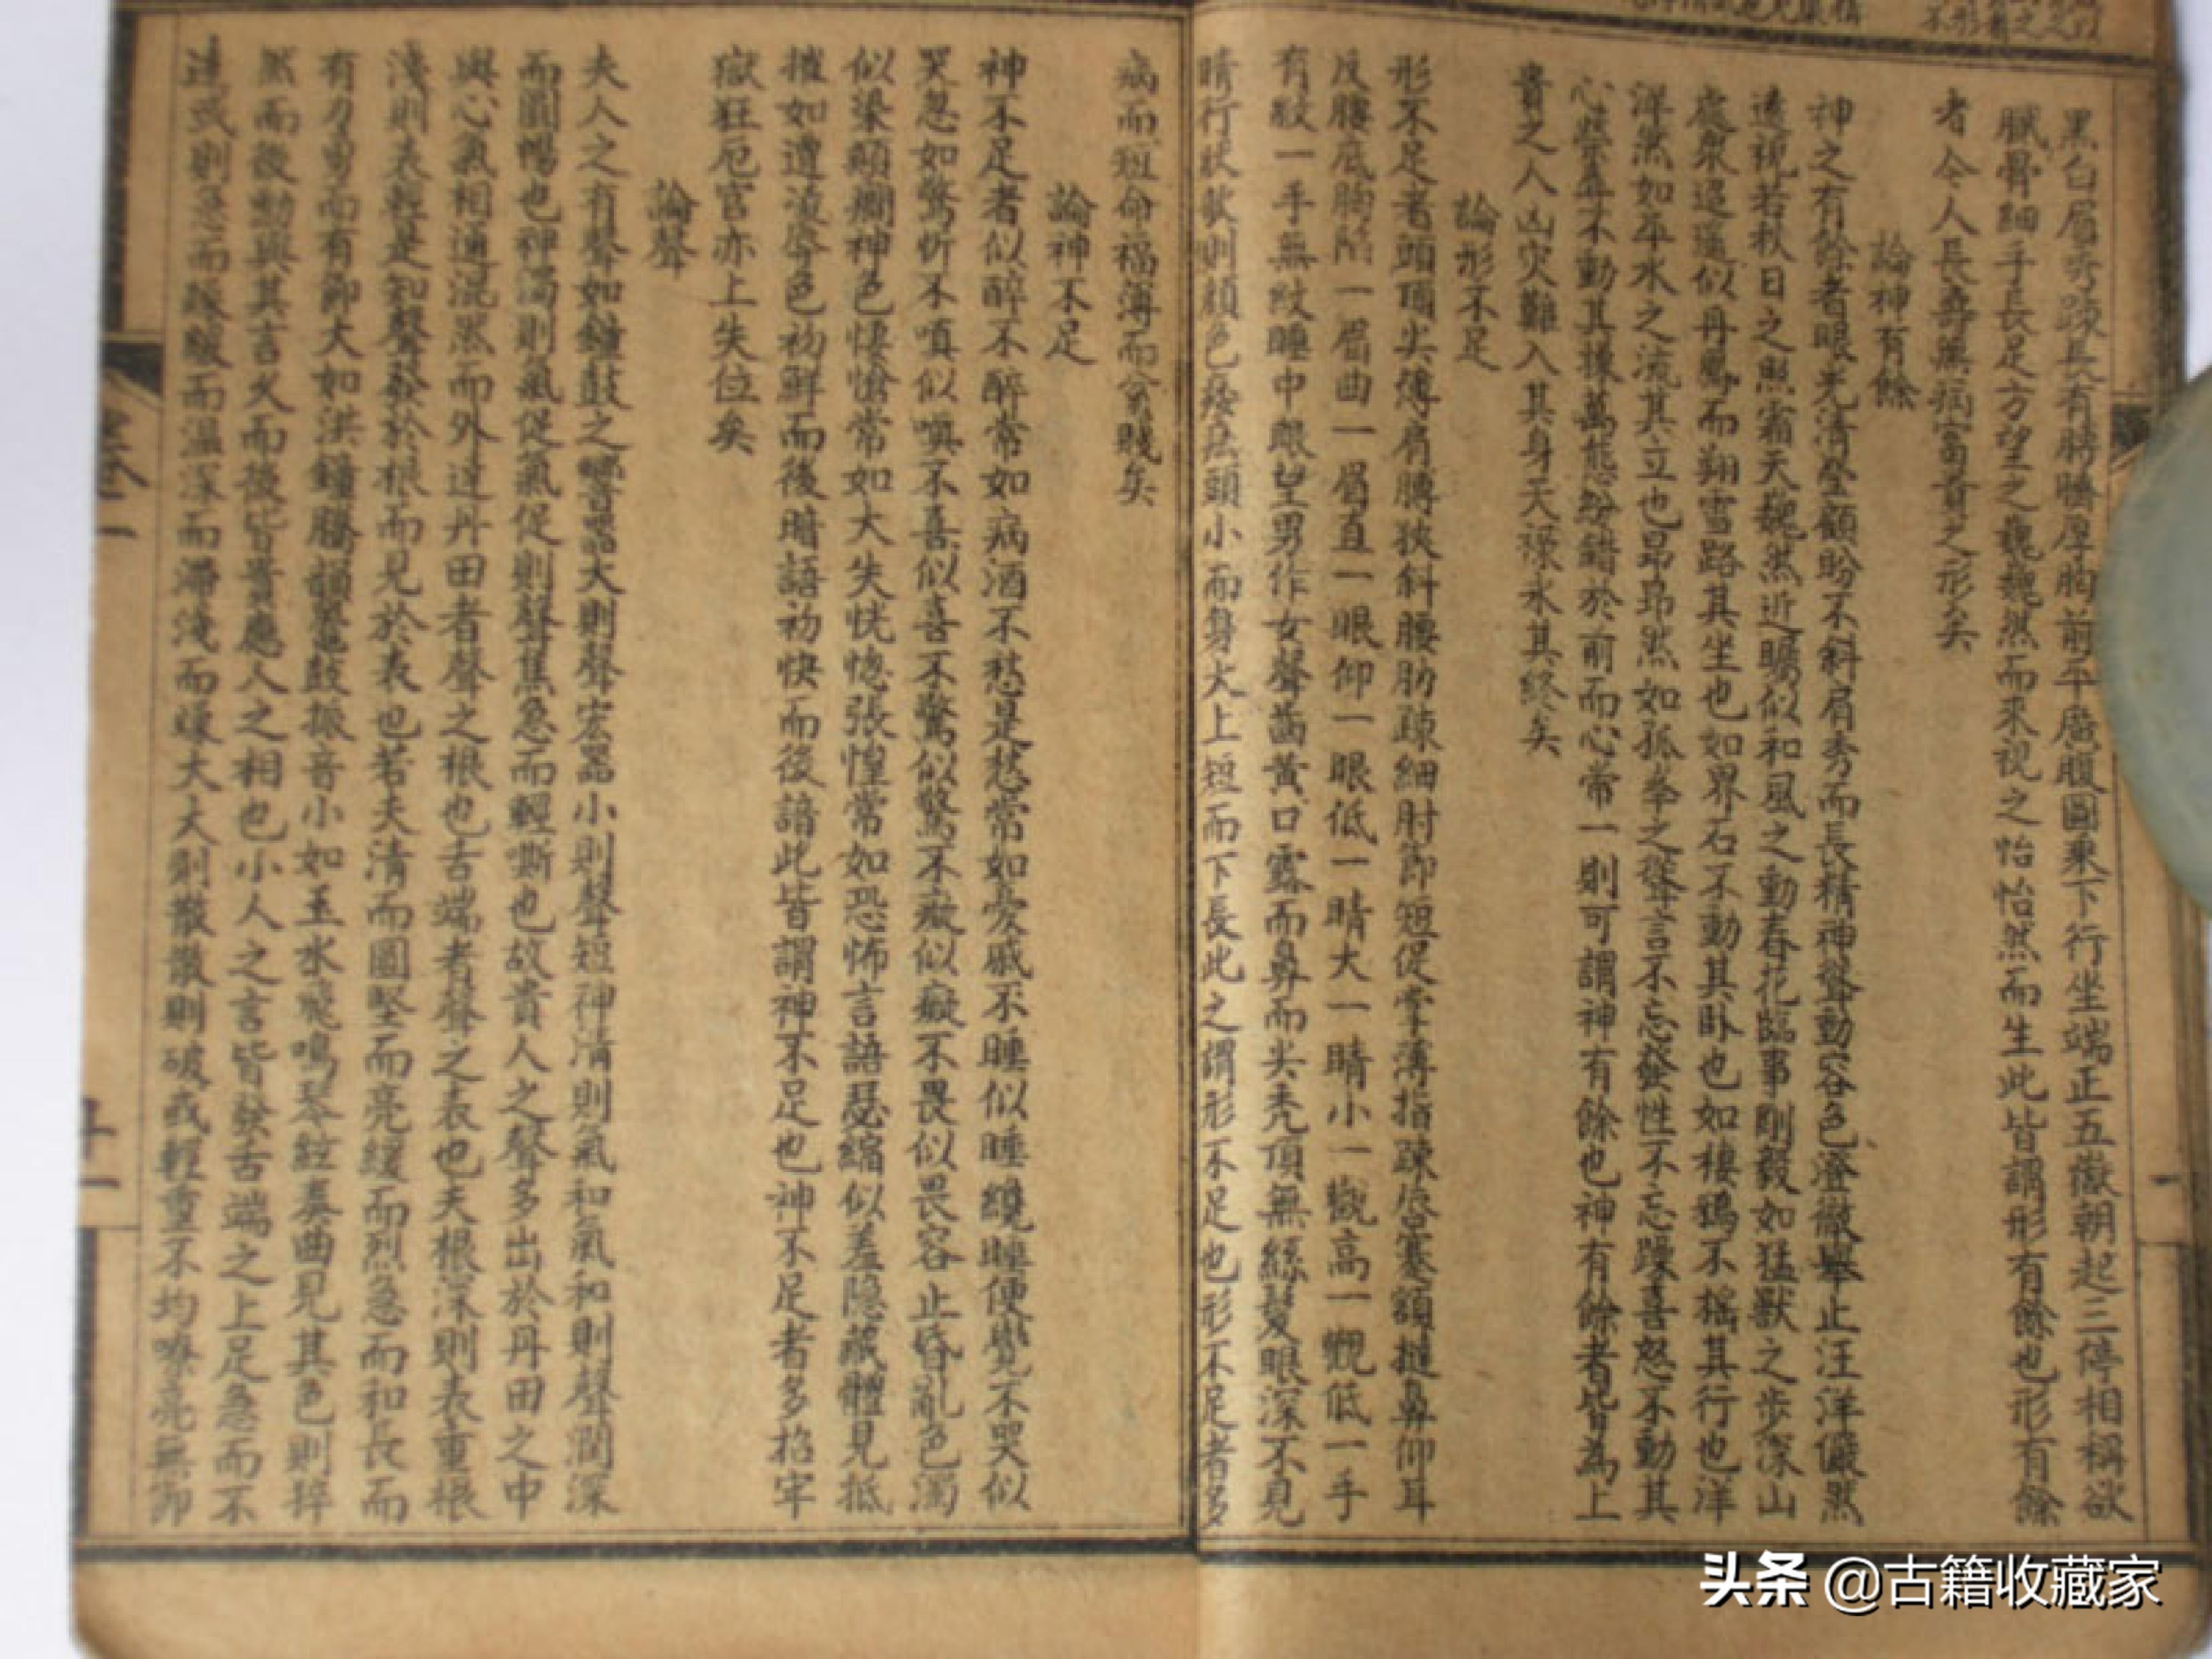 黑白眉秀疎長有膊臍厚胸前平廣腹圓乗下行坐端正五嶽朝起三停相稱欲
膩骨細手長足方望之巍巍然而來視之怡怡然而生此皆謂形有餘也形有餘
者令人長壽無病富貴之形矣
論神有餘
神之有餘者眼光清瑩顧盼不斜眉秀而長精神聳動容色澄徹舉止汪洋儼然
遠視若秋日之照霜天巍然近矚似和風之動春花臨事剛毅如猛獸之步深山
處衆逍遥似丹鳳而翔雪路其坐也如界石不動其卧也如棲鴉不搖其行也洋
洋然如平水之流其立也昂昂然如孤峯之聳言不忘發性不忘躁喜怒不動其
心榮辱不動其操萬態紛錯於前而心常一則可謂神有餘也神有餘者皆為上
貴之人凶災難入其身天禄永其終矣
論形不足
形不足者頭頂尖薄肩膊狹斜腰肋疎細肘節短促掌薄指疎唇蹇額撻鼻仰耳
反腰底胸陷一眉曲一眉直一眼仰一眼低一睛大一睛小一顴高一顴低一手
有紋一手無紋睡中眼望男作女聲齒黄口露而鼻而尖禿頂無絲髮眼深不見
睛行狀欹側顔色痿怯頭小而身大上短而下長此之謂形不足也形不足者多
病而短命福薄而貧賤矣
論神不足
神不足者似醉不醉常如病酒不愁是愁常如憂戚不睡似睡纔睡便覺不哭似
哭忽如驚忻不嗔似嗔不喜似喜不驚似驚不癡似癡不畏似畏容止昏亂色濁
似染顛癎神色悽愴常如大失恍惚張惶常如恐怖言語瑟縮似羞隐藏體見抵
摧如遭凌辱色初鮮而後暗語初快而後諳此皆謂神不足也神不足者多招牢
獄狂厄官亦上失位矣
論聲
夫人之有聲如鐘鼓之響器大則聲宏器小則聲短神清則氣和氣和則聲潤深
而圓暢也神濁則氣促氣促則聲焦急而輕嘶也故貴人之聲多出於丹田之中
與心氣相通混然而外達丹田者聲之根也舌端者聲之表也夫根深則表重根
淺則表輕是知聲發於根而見於表也若夫清而圓堅而亮緩而烈急而和長而
有力勇而有節大如洪鐘騰韻鼉鼓振音小如玉水飛鳴琴絃奏曲見其色則猝
然而後動與其言久而後皆貴應人之相也小人之言皆發舌端之上足急而不
達或則急而 緩而温深而滯淺而燥大大則散散則破或輕重不均嘹亮無節
卷一
一
頭条 @古籍收藏家